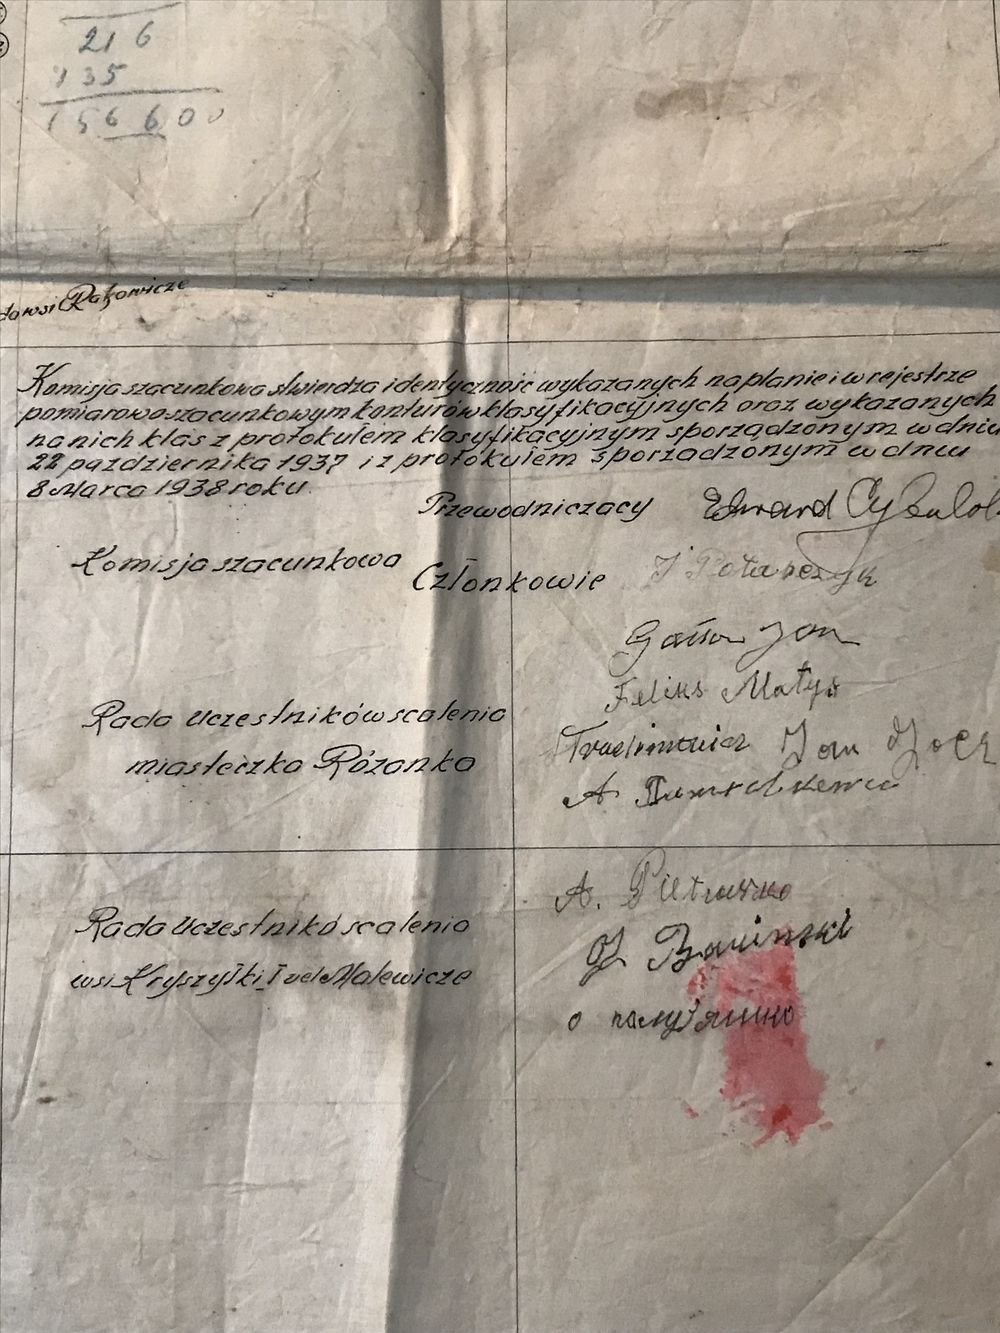 216
135
156600
Rakowicze
Komisja szacunkowa stwierdza identyczność wykazanych na planie i w rejestrze
pomiarowo szacunkowym konturów klasyfikacyjnych oraz wykazanych
na nich klas z protokułem klasyfikacyjnym sporządzonym w dniu
22 października 1937 i z protokułem sporządzonym w dniu
8 Marca 1938 roku
Przewodniczący Edward
Komisja szacunkowa
Członkowie J
Jan
Feliks Matys
Rada Uczestników scalenia
Jan
miasteczka Różanka
A
A. Pietraszko
Rada Uczestnikó scalenia
J. Barinski
wsi Kryszyłki I vel Malewicze